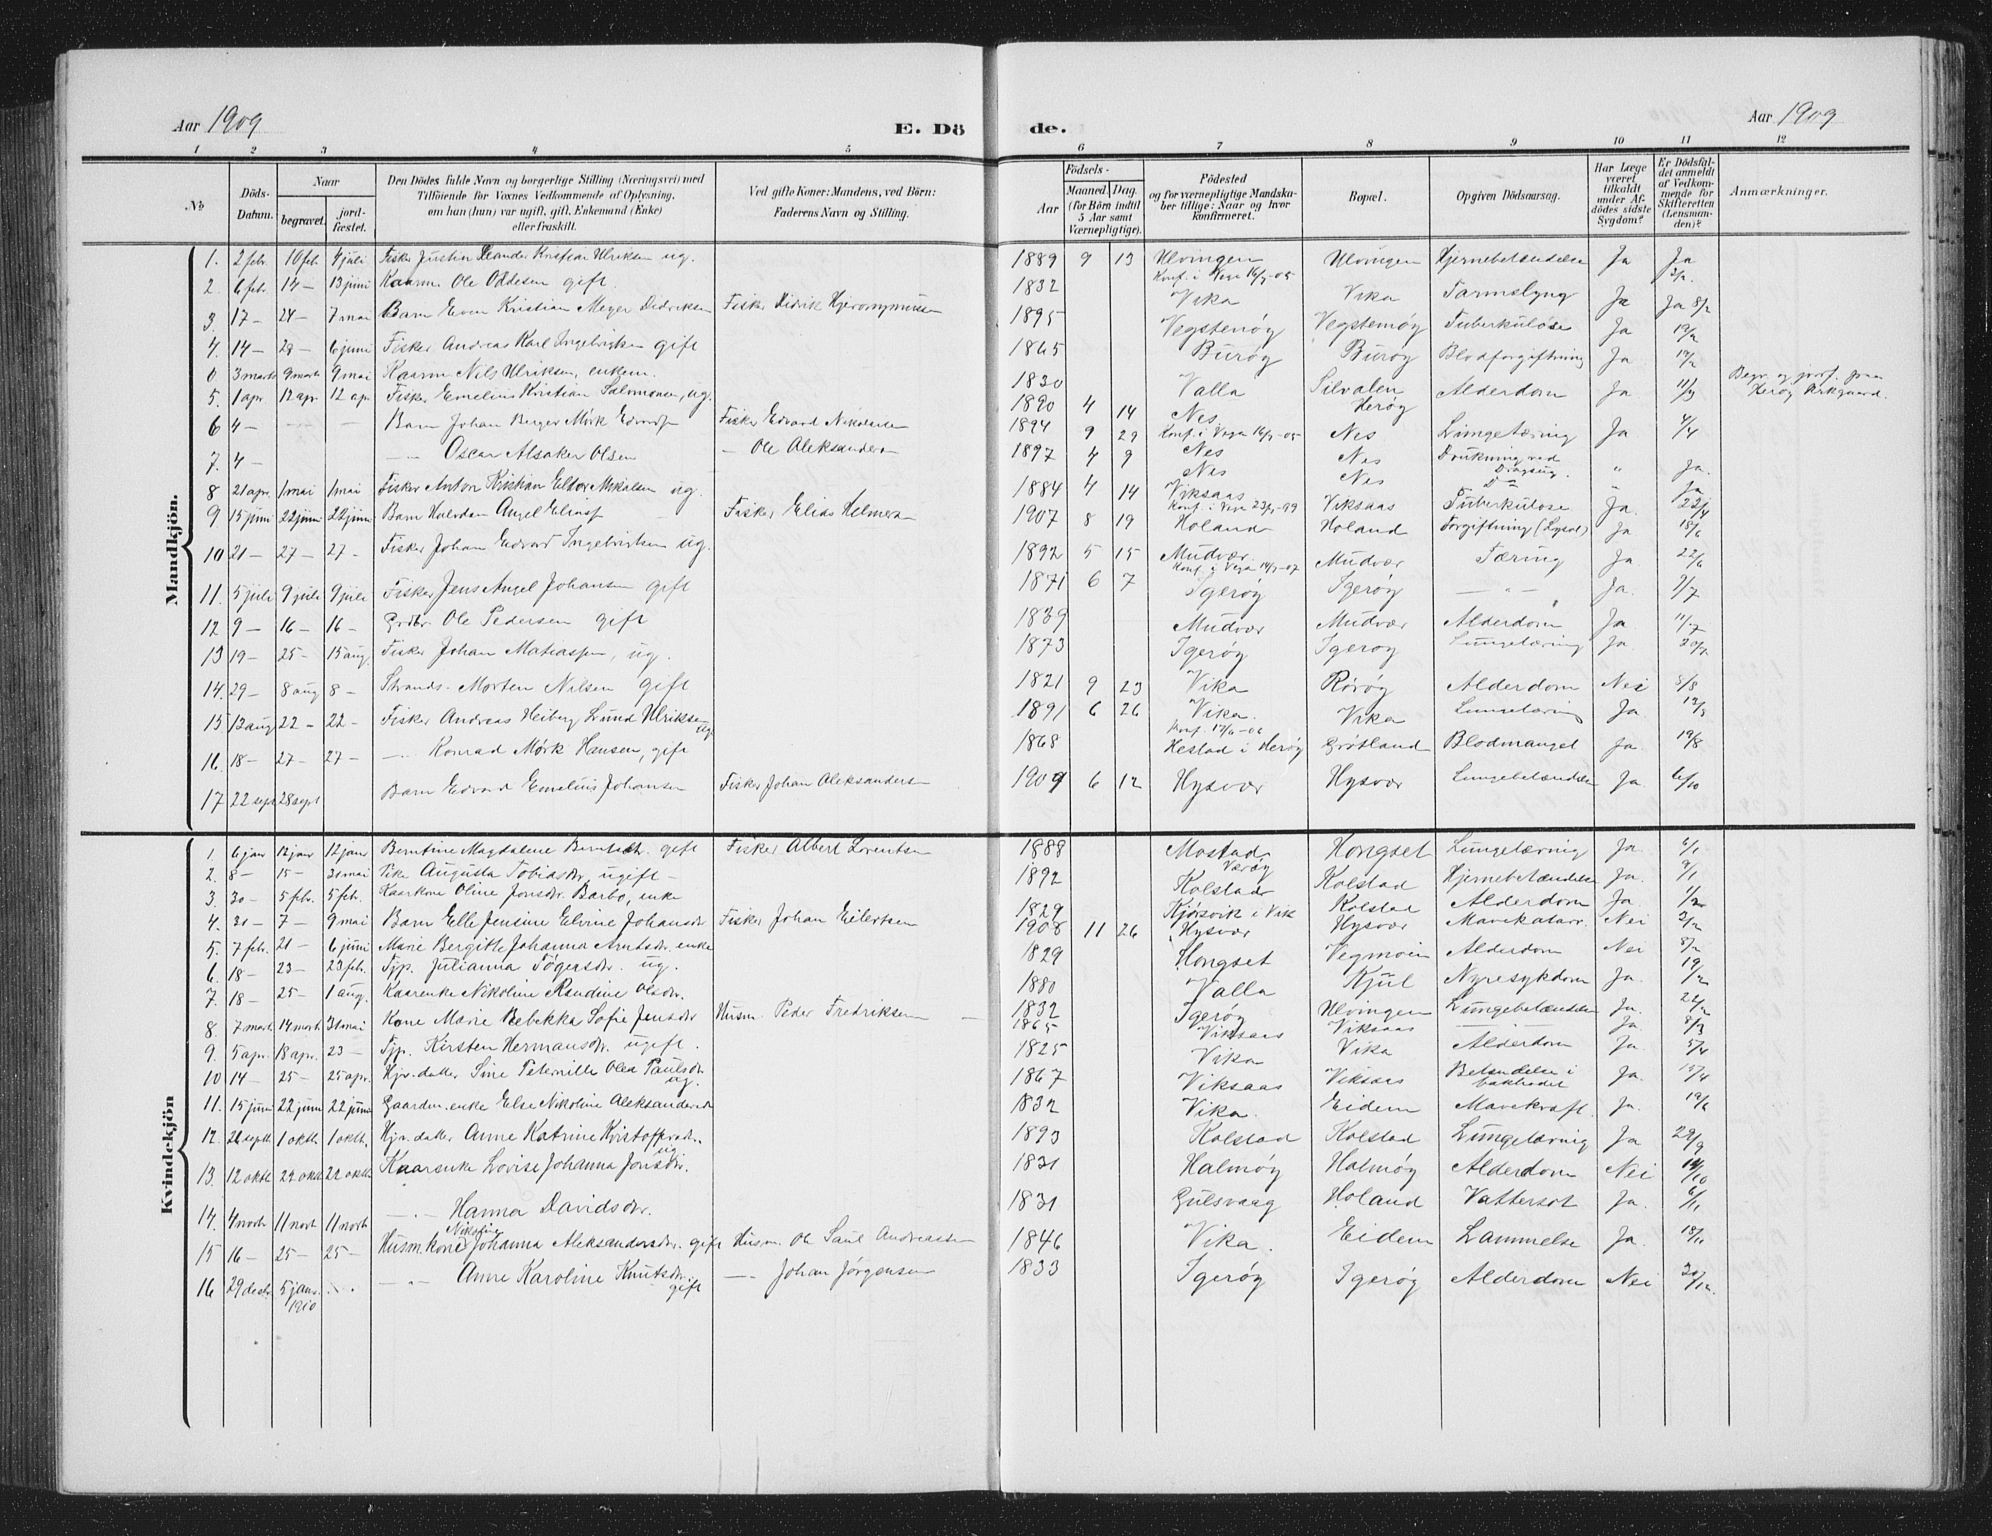 Aar 1909
E. Dö
de.
Aar 1909
1 2 3 4 5 6 7 8 9 10 11 12
No
Döds-Datum.
Naar
begravet.
jord-fæstet.
Den Dödes fulde Navn og borgerlige Stilling (Næringsvei) med
Tilföiende for Voxnes Vedkommende af Oplysning,
om han (hun) var ugift, gift, Enkemand (Enke)
eller fraskilt.
Ved gifte Koner: Mandens, ved Börn:
Faderens Navn og Stilling.
Födsels-
Aar
Maaned. Dag.
(for Börn indtil
5 Aar samt
Værnepligtige).
Födested
og for værnepligtige Mandska-
ber tillige: Naar og hvor
konfirmeret.
Bopæl.
Opgiven Dödsaarsag.
Har Læge
været
tilkaldt
under Af-
dödes sidste
Sygdom?
Er Dödsfal-
det anmeldt
af Vedkom-
mende for
Skifteretten
(Lensman-
den)?
Anmærkninger.
Mandkjön.
1. 2 febr. 10 feb. 4 juli Fisker Justin Leander Kristian Ulriksen ug. 1889 9 13 Ulvingen Konf. i Vega 16/7-05 Ulvingen Hjernebetændelse Ja Ja 3/2
2. 6 feb. 14 — 13 juni Kaarm. Ole Oddesen gift. 1832 Vika Vika Tarmslyng Ja Ja 8/2
3. 17 — 24 — 7 mai Barn Even Kristian Meyer Didriksen Fisker Didrik Hjeronymussen 1895 Vegstenöy Vegstenöy Tuberkulose Ja 19/2
4. 14 — 28 — 6 juni Fisker Andreas Karl Ingebrigtsen gift 1865 Buröy Buröy Blodforgiftning Ja 17/2
0 3 marts 9 marts 9 mai Kaarm. Nils Ulriksen, enkem. 1830 Valla Silvalen Heröy Alderdom Ja 11/3 Begr. og jordf. paa Heröy Kirkegaard.
5. 1 apr 12 apr 12 ap. Fisker Emelius Kristian Salomonsen, ug. 1890 4 14 Nes Konf. i Vega 16/7-05 Nes Lungetæring Ja 4/4
6 4 — — — Barn Johan Berger Mörk Edvardsen Fisker Edvard Nikolaisen 1894 9 29 Nes Nes Drukning ved Dragsug. " Ja.
7. 4 — — " — Oscar Alsaker Olsen — Ole Aleksandersen 1897 4 9 Nes Nes D — " Ja
8 21 apr. 1 mai 1 mai Fisker Anton Kristian Eltor Mikalsen ug. 1884 4 14 Viksaas Konf. i Vega 23/7-99 Viksaas Tuberkulose Ja. 22/4
9 15 juni 22 juni 22 juni Barn Halvdan Angel Eliass. Fisker Elias Helmersen 1907 8 19 Holand Holand Forgiftning (Lysol) Ja 18/6
10 21 — 27 — 27 — Fisker Johan Edvard Ingebrigtsen ug. 1892 5 15 Mudvær Konf. i Vega 14/7-07 Mudvær Tæring Ja. 22/6
11. 5 juli 9 juli 9 juli Fisker Jens Angel Johansen gift 1871 6 7 Igeröy Igeröy — " — Ja. 7/7
12 9 — 16 — 16 — Grdbr. Ole Pedersen gift 1839 Mudvær Mudvær Alderdom Ja 11/7
13 19 — 25 — 15 aug. Fisker Johan Matiassen, ug. 1873 Igeröy Igeröy Lungetæring Ja 20/7
14. 29 — 8 aug 8 — Strands. Morten Nilsen gift 1821 9 23 Vika Röröy Alderdom Nei 8/8
15 13 aug 22 — 22 — Fisker Andreas Heiberg Lund Ulriksen ug. 1891 6 26 Vika. Konf. 17/6-06 Vika Lungetæring Ja.
16. 18 — 27 — 27 — — " — Konrad Mörk Hansen, gift 1868 Hestad i Heröy Grötland Blodmangel Ja. 19/8
17 22 sept 28 sept Barn Edvard Emelius Johansen Fisker Johan Aleksandersen 1909 6 12 Hysvær Hysvær Lungebetændelse Ja 6/10
Kvindekjön
1. 6 jan 12 jan 12 jan Berntine Magdalene Berntsdtr. gift Fisker Albert Lorentsen 1888 Mostad Væröy Hongset Lungetæring Ja. 6/1
2. 8 — 15 — 31 mai Pike Augusta Tobiasdtr. ugift — 1892 Kolstad Kolstad Hjernebetændelse Ja. 9/1
3. 30 — 5 feb. 5 feb. Kaarkone Oline Jonsdtr. Barbo, enke 1829 Kjörsvik i Vik Kolstad Alderdom Ja. 1/2
4. 31 — 7 — 9 mai Barn Elle Jensine Elvine Johansdtr Fisker Johan Eilertsen 1908 11 26 Hysvær Hysvær Mavekatarr. Nei 2/2
5. 7 feb. 21 — 6 juni Marie Bergitte Johanna Arntsdtr. enke 1829 Hongset Vegmoen Alderdom Nei 8/2
6. 18 — 23 — 23 feb. Tjp. Julianna Tögersdtr. ug. 1880 Valla Kjul Nyresykdom Ja. 19/2
7. 18 — 25 — 1 aug. Kaarenke Nikoline Randine Olsdtr. 1832 Igeröy Ulvingen Lungebetændelse Ja. 22/2
8. 7 marts 14 marts 31 mai Kone Marie Rebekka Sofie Jensdtr Husm. Peder Fredriksen — 1865 Viksaas Viksaas — Ja 8/3
9. 5 apr. 18 apr. 23 — Tjp. Kirsten Hermansdtr. ugift. 1825 Vika Vika Alderdom Ja. 5/4
10 14 — 25 — 25 apr. Hjv. datter Sine Peternille Olea Paulsdtr. ug. 1867 Viksaas Viksaas Betændelse i bakhodet Ja. 15/4
11. 15 juni 22 juni 22 juni Gaardm. enke Else Nikoline Aleksandersdtr 1832 Vika. Eidem Mavekræft. Ja. 19/6
12. 26 sept 1 okt. 1 okt. Hjv. datter Anne Katrine Kristoffersdtr. ug. 1893 Kolstad Kolstad Lungetæring Ja 29/9
13. 12 okt. 22 okt 22 okt. Kaarenke Lovise Johanna Jonsdtr. 1831 Halmöy Halmöy Alderdom Nei 14/10
14. 4 novb 11 novb 11 novb — " — Hanna Davidsdtr. 1831 Gulsvaag Holand Vattersot Ja. 6/11
15 16 — 25 — 25 — Husm. kone Nikoline Johanna Aleksandersdtr. gift Husm. Ole Saul Andreassen 1846 Vika. Eidem Lammelse Ja. 18/11
16 29 decbr. 5 jan. 1910 — " — Anne Karoline Knutsdtr. gift — " — Johan Jörgensen 1833 Igeröy Igeröy Alderdom Nei 30/12.